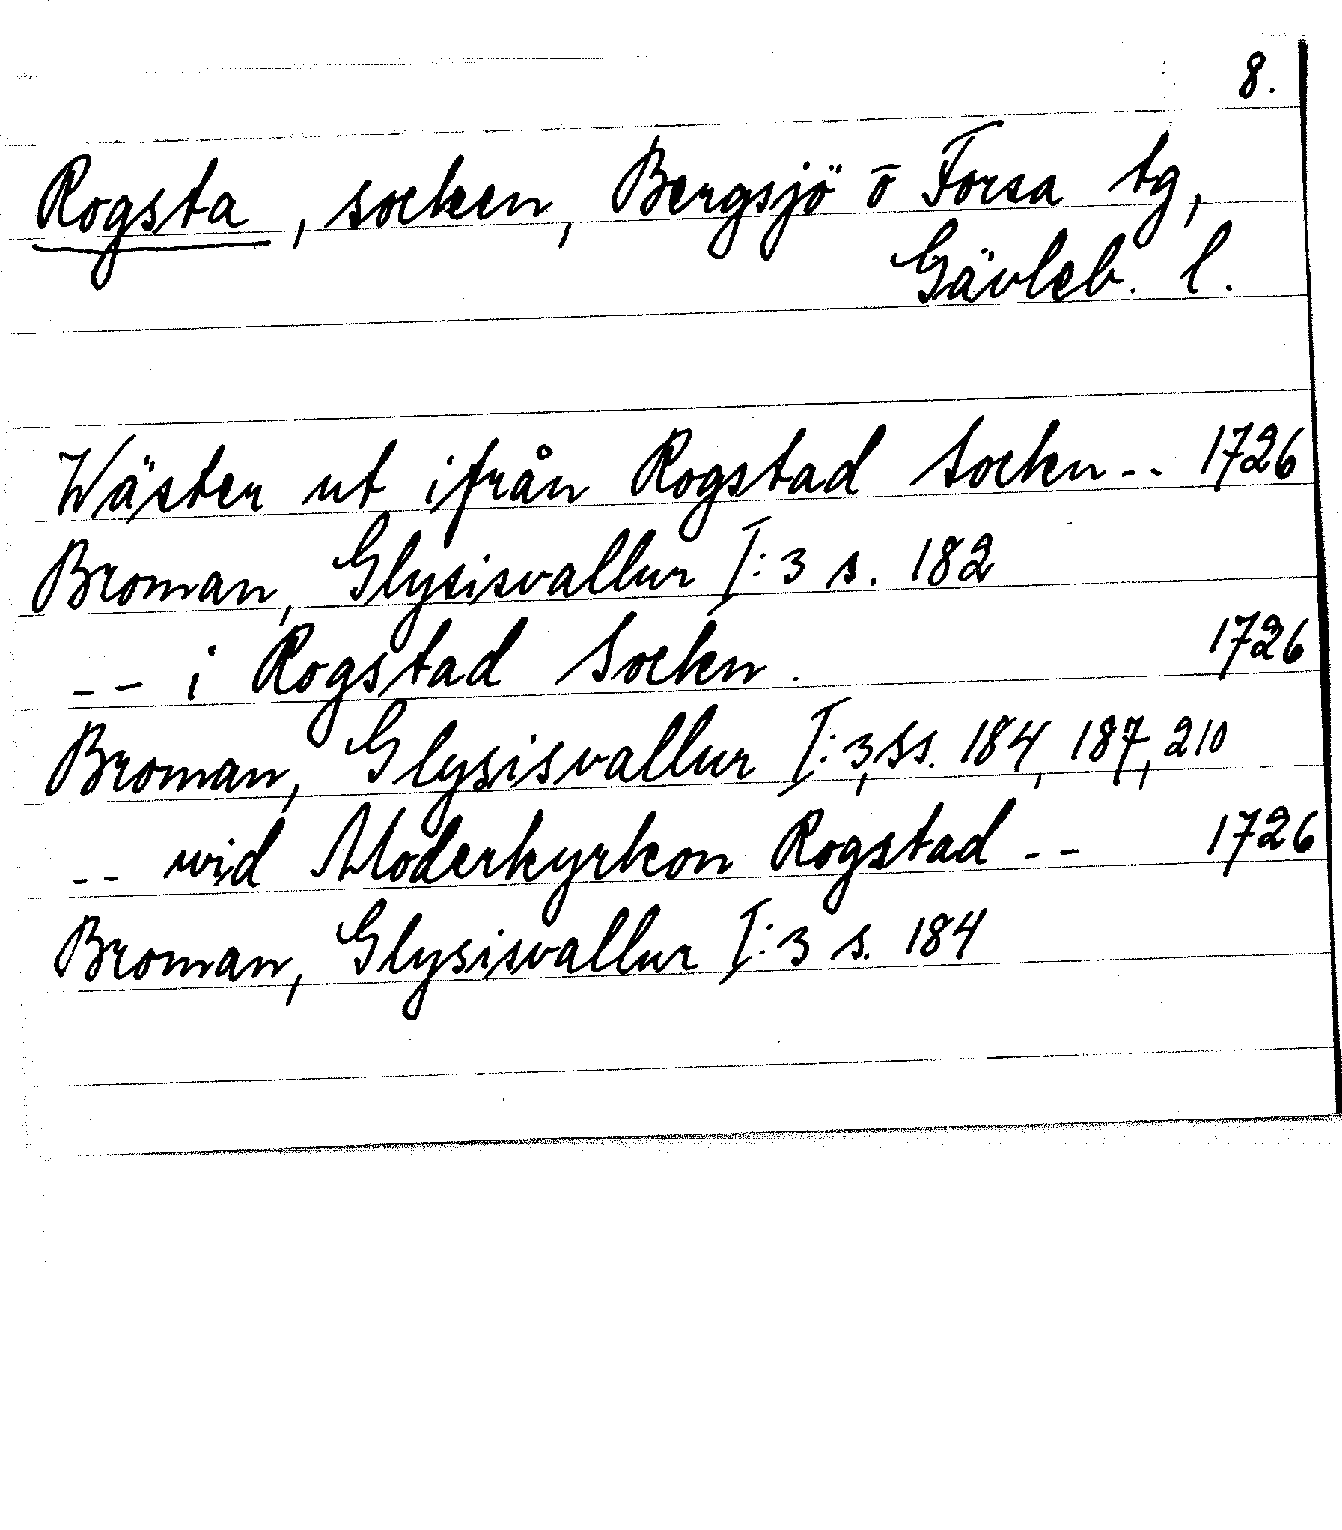 8.
Rogsta, socken, Bergsjö ō Forsa tg,
Gävleb. l.
Wäster ut ifrån Rogstad Sockn -- 1726
Broman, Glysisvallur I:3 s. 182
-- i Rogstad Sockn. 1726
Broman, Glysisvallur I:3, ss. 184, 187, 210
-- wid Moderkyrkon Rogstad -- 1726
Broman, Glysisvallur I:3 s. 184